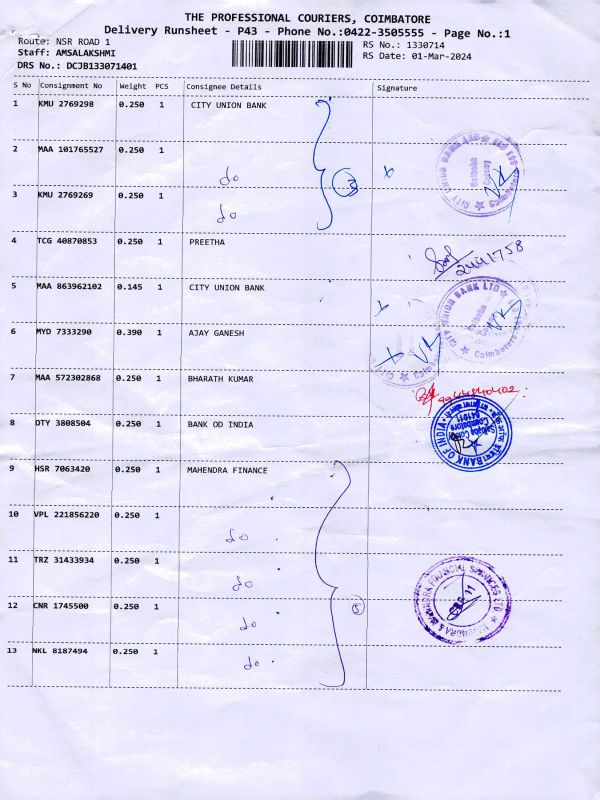 THE PROFESSIONAL COURIERS, COIMBATORE
Delivery Runsheet - P43 - Phone No.:0422-3505555 - Page No.:1
Route: NSR ROAD 1 RS No.: 1330714
Staff: AMSALAKSHMI RS Date: 01-Mar-2024
DRS No.: DCJB133071401
S No Consignment No Weight PCS Consignee Details Signature
1 KMU 2769298 0.250 1 CITY UNION BANK
2 MAA 101765527 0.250 1 do
3 KMU 2769269 0.250 1 do
3
CITY UNION BANK LTD
4 TCG 40870853 0.250 1 PREETHA
2441758
5 MAA 863962102 0.145 1 CITY UNION BANK
CITY UNION BANK LTD
Coimbatore
6 MYD 7333290 0.390 1 AJAY GANESH
7 MAA 572302868 0.250 1 BHARATH KUMAR
8 OTY 3808504 0.250 1 BANK OD INDIA
BANK OF INDIA
Coimbatore
641011
9 HSR 7063420 0.250 1 MAHENDRA FINANCE
10 VPL 221856220 0.250 1 do
11 TRZ 31433934 0.250 1 do
12 CNR 1745500 0.250 1 do
5
MAHINDRA & MAHINDRA FINANCIAL SERVICES LTD
13 NKL 8187494 0.250 1 do